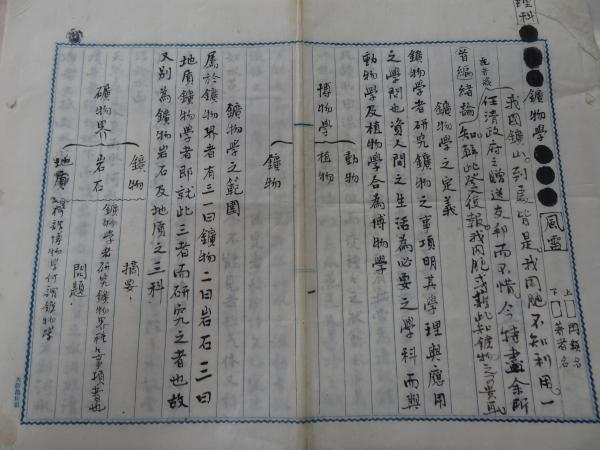 理科
上 问题名
下 著者名
鑛物學
風雷
我国鑛山到處皆是我国胞不知利用。一
任清政府之贈送友邦而不惜今特盡余所
首編緒論
鑛物學之定義
鑛物學者研究鑛物之事項明其學理與應用
之學問也資人間之生活為必要之學科而與
動物學及植物學合為博物學
博物學
動物
植物
鑛物
鑛物學之範圍
屬於鑛物界者有三一曰鑛物二曰岩石三曰
地質鑛物學者即就此三者而研究之者也故
又別為鑛物岩石及地質之三科
礦物界
鑛物
岩石
地質
摘要.
鑛物學者研究鑛物界種々事項者也
問題.
博物學何謂鑛物學